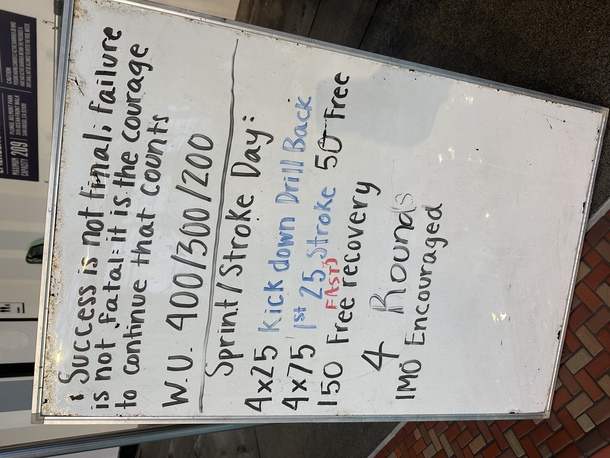 MAXIMUM CAPACITY 209
PLUNGE, BELMONT PARK
3115 OCEAN FRONT WALK
SAN DIEGO, CA 92109
CAUTION
Success is not final; failure
is not fatal: it is the courage
to continue that counts
W.U. 400/300/200
Sprint/Stroke Day:
4x25 Kick down Drill Back
4x75 1st 25 Stroke 50 Free
FAST
150 Free recovery
4 Rounds
IMO Encouraged